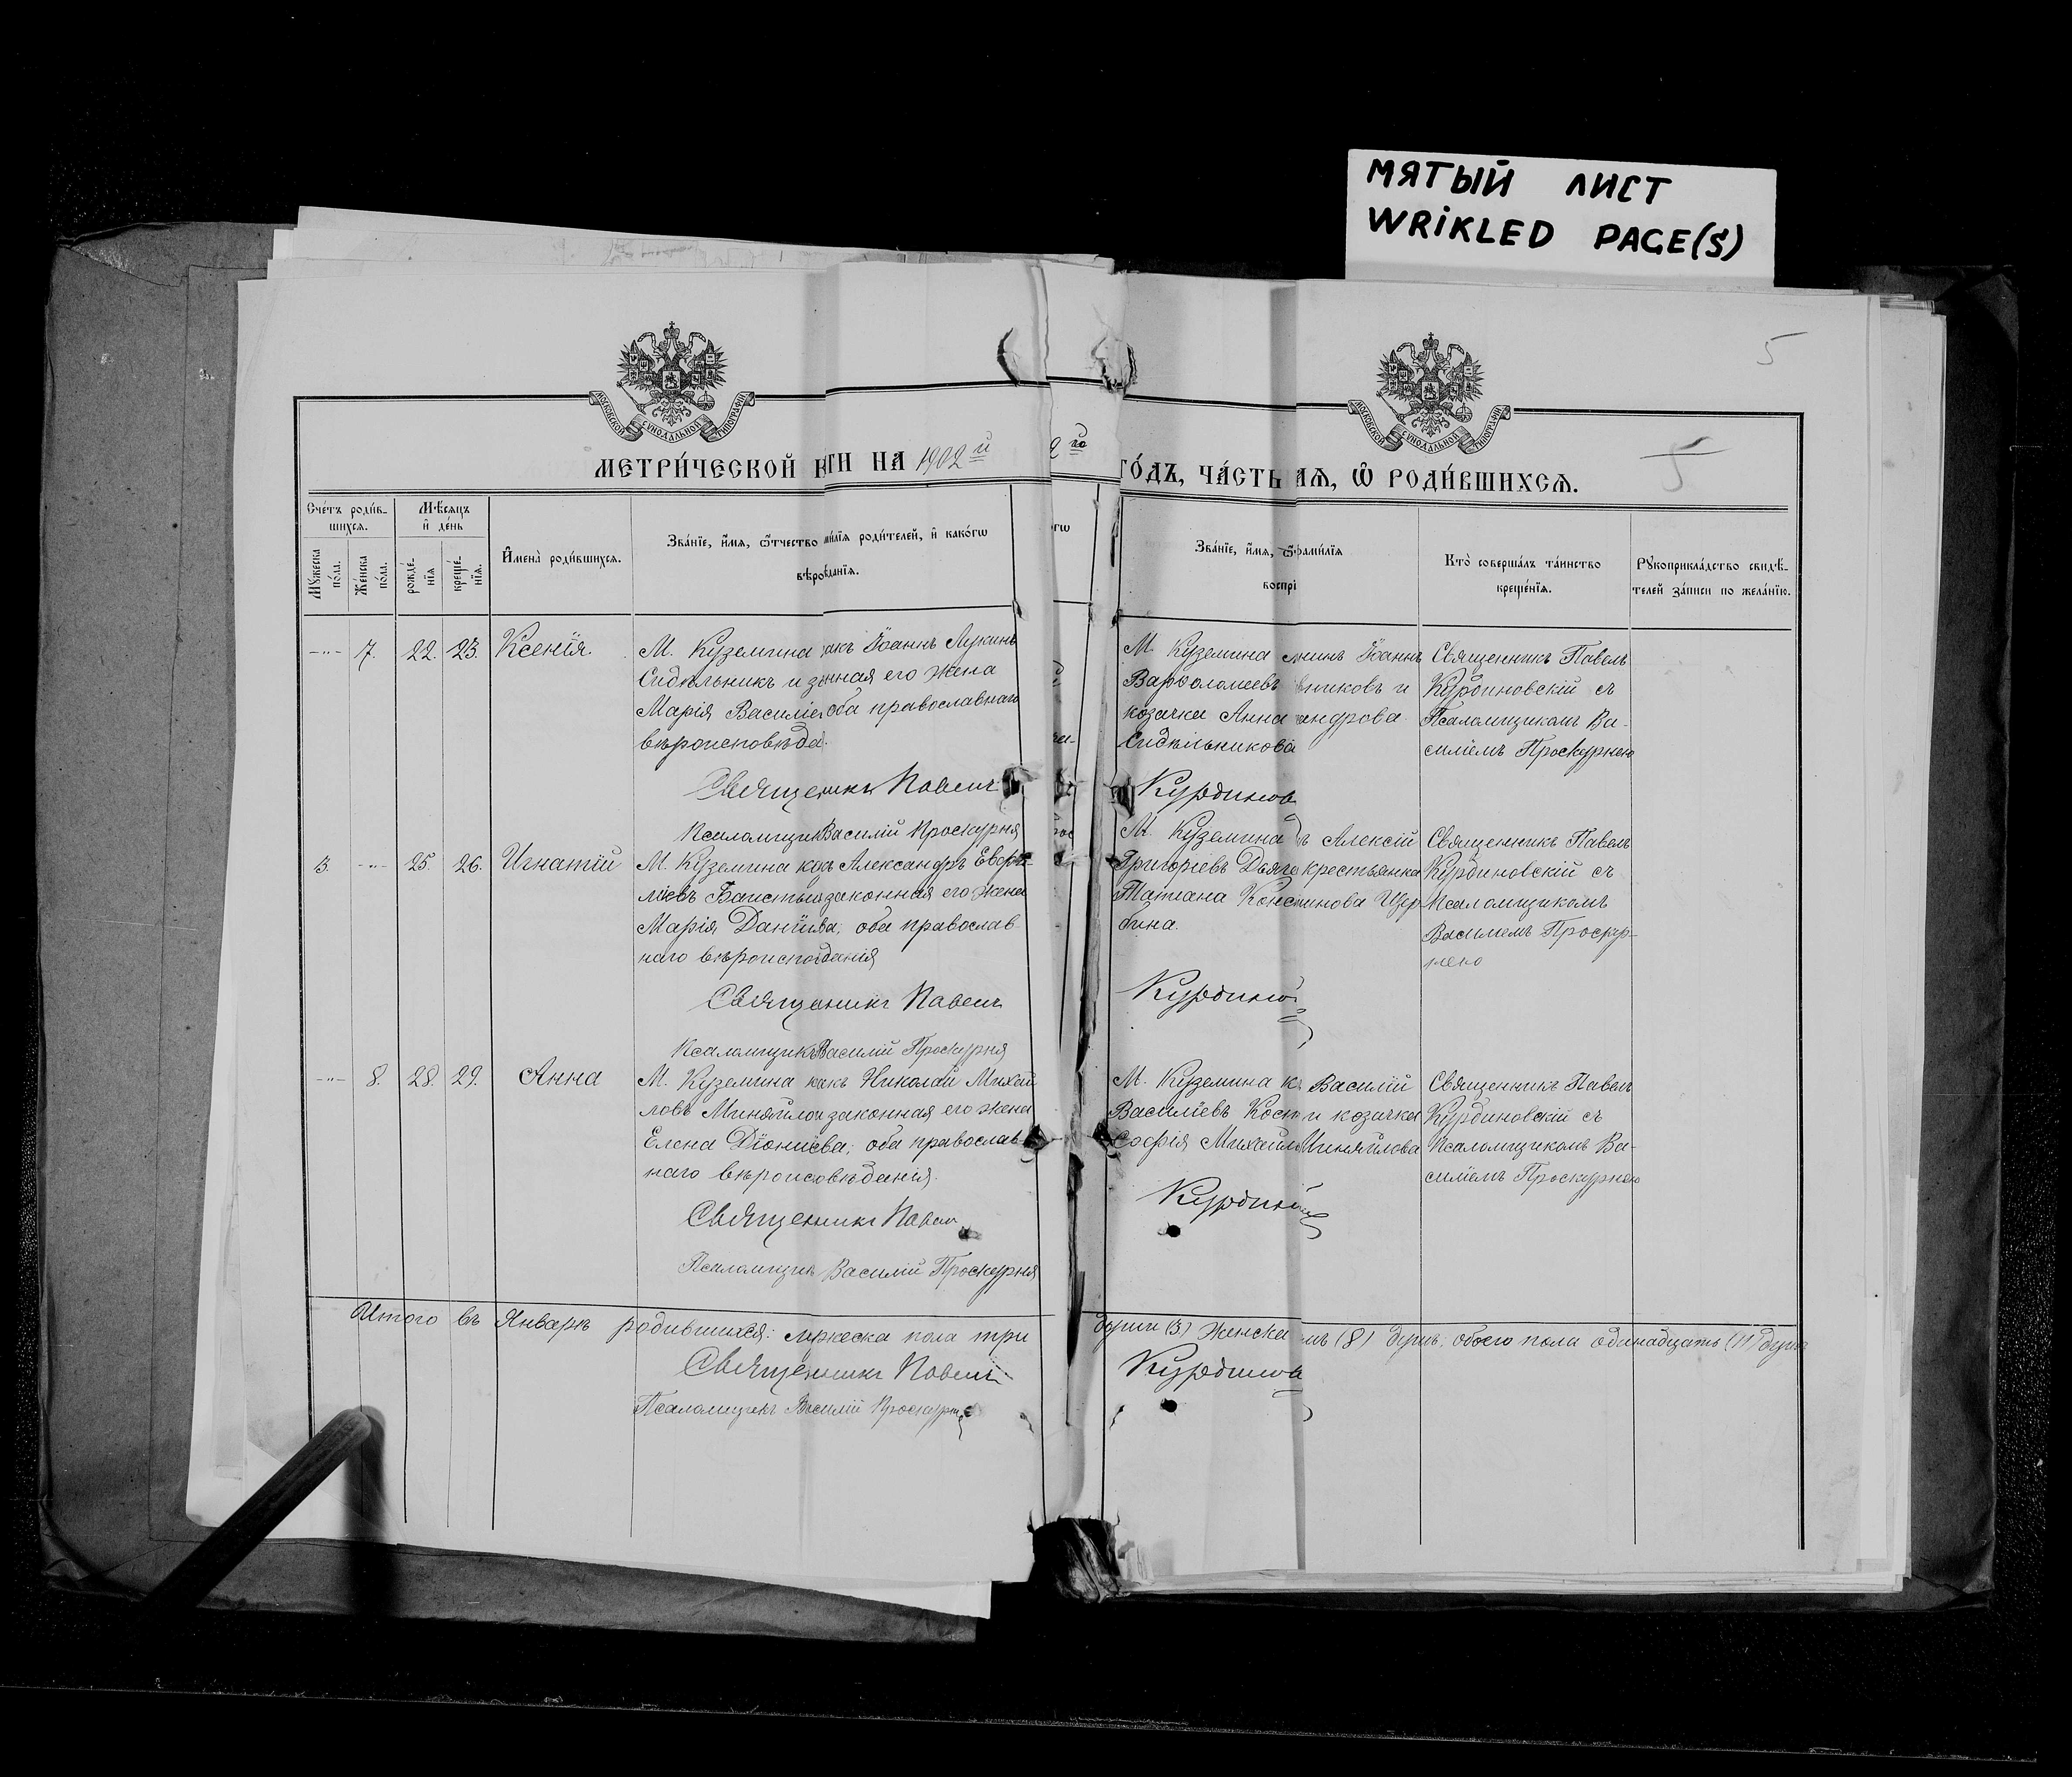 МЯТЫЙ ЛИСТ
WRIKLED PAGE(S)
5
5
МОСКОВСКОЙ СѴНОДАЛЬНОЙ ТИПОГРАФІИ
МОСКОВСКОЙ СѴНОДАЛЬНОЙ ТИПОГРАФІИ
МЕТРИ́ЧЕСКОЙ К ГИ НА 1902й
2го
ГО́ДЪ, ЧА́СТЬ АЯ, Ѽ РОДИ́ВШИХСЯ.
Счетъ роди́в-
шихся.
Мѣсяцъ
и де́нь
Му́жеска по́ла.
Же́нска по́ла.
рожде́-
нїя
креще́-
нїя.
Имена̀ роди́вшихся.
Зва́нїе, и́мя, ѿчество ми́лїя роди́телей, и како́гѡ
вѣро вданїя.
огѡ
Зва́нїе, и́мя, ѿ фами́лїя
воспрі
Кто̀ соверша́лъ та́инство
креще́нїя.
Рукоприкла́дство свидѣ́-
телей за́писи по жела́нїю.
-"- 7. 22. 23. Ксенія.
М. Куземина акъ Іоаннъ Лукинъ
Сидѣльникъ и за нная его жена
Марія Василіе оба православнаго
вѣроисповѣда
Священникъ Павелъ
Псаломщик Василій Проскурня
М. Куземина нинъ Іоаннъ
Варѳоломеевъ вниковъ и
козачка Анна андрова
Сидѣльникова
Курдинов
Священникъ Павелъ
Курдиновскій съ
Псаломщикомъ Ва-
силіемъ Проскурнею
3. -"- 25. 26. Игнатій
М. Куземина ко ъ Александръ Евфи-
міевъ законная его жена
Марія Дані ва; оба православ
наго вѣроиспо данія
Священникъ Павелъ
Псаломщикъ Василій Проскурня
М. Куземина ъ Алексій
Григоріевъ Дьяч крестьянка
Татіана Конс инова Щер
бина.
Курдино
Священникъ Павелъ
Курдиновскій съ
Псаломщикомъ
Василіемъ Проскур-
нею
-"- 8. 28. 29. Анна
М. Куземина ка къ Николай Михай
ловъ Миняйло и законная его жена
Елена Діонисіева; оба православ
наго вѣроисповѣданія.
Священникъ Павел
Псаломщикъ Василій Проскурня
М. Куземина к ъ Василій
Василіевъ Кост и козачка
Софія Михайл Миняйлова
Курдин
Священникъ Павелъ
Курдиновскій съ
Псаломщикомъ Ва-
силіемъ Проскурнею
Итого въ Январѣ родившихся: мужеска пола три
души (3) женска мъ (8) душъ; обоего пола одинадцать (11) душъ
Священникъ Павелъ
Курдинов
Псаломщикъ Василій Проскурня